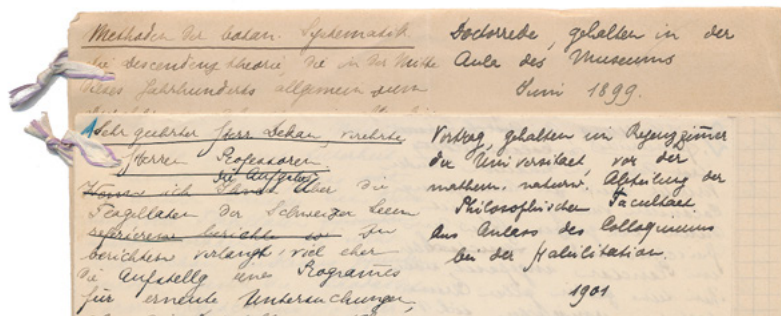 Methoden der botan. Systematik.
Die Descendenztheorie, die in der Mitte
dieses Jahrhunderts allgemein zum
Doctorrede, gehalten in der
Aula des Museums
Juni 1899.
Sehr geehrter Herr Dekan, verehrte
Herren Professoren.
die Aufgabe
ich Ihnen über die
Flagellaten der Schweizer Seen
referieren berichten zu
berichten verlangt viel eher
die Aufstellg eines Programes
für erneute Untersuchungen,
Vortrag, gehalten im Regenzzimmer
der Universitaet, vor der
mathem. naturw. Abteilung der
Philosophischen Facultaet
aus Anlass des Colloquiums
bei der Habilitation.
1901